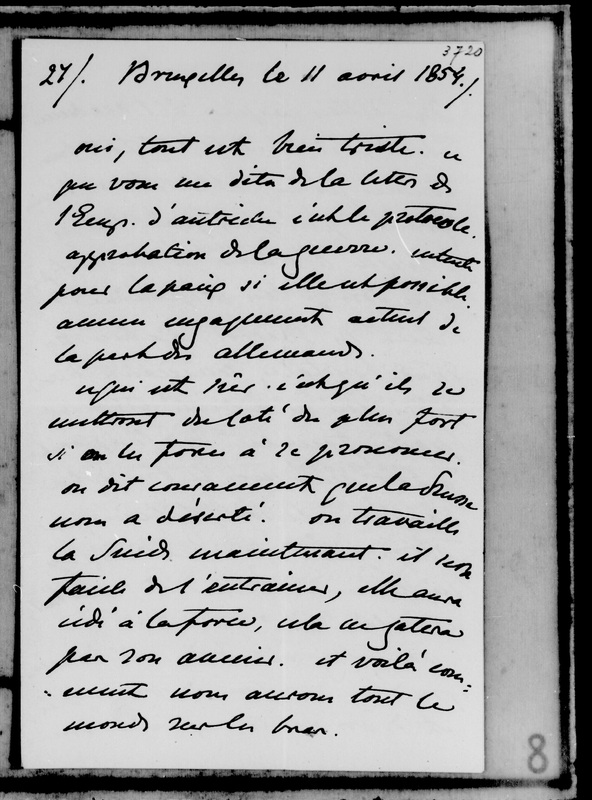 3720
27/. Bruxelles le 11 avril 1854./.
oui, tout est bien triste. ce
que vous me dites de la lettre de
l'Emp. d'autriche c'est le protocole.
approbation de la guerre. entente
pour la paix si elle est possible.
aucun engagement actuel de
la part des allemands.
ce qui est sûr. c'est qu'ils se
mettront du coté du plus fort
si on les force à se prononcer.
on dit couramment que la Prusse
nous a déserté. on travaille
la Suède maintenant. il sera
facile de l'entrainer, elle aura
cédé à la force, cela ne gatera
par son avenir. et voilà com-
-ment nous aurons tout le
monde sur les bras.
8